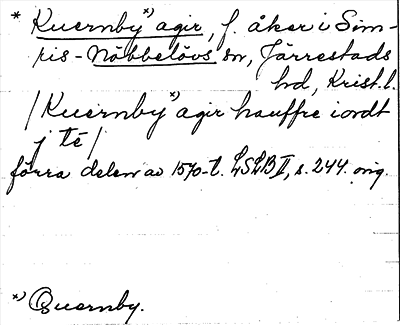 * Kuernby *) agir, f. åker i Sim-
ris-Nöbbelövs sn, Järrestads
hd, Krist.l.
/Kuernby *) agir hauffre iordt
j tē/
förra delen av 1570-t. LSLB II, s. 244. orig.
*) Quernby.